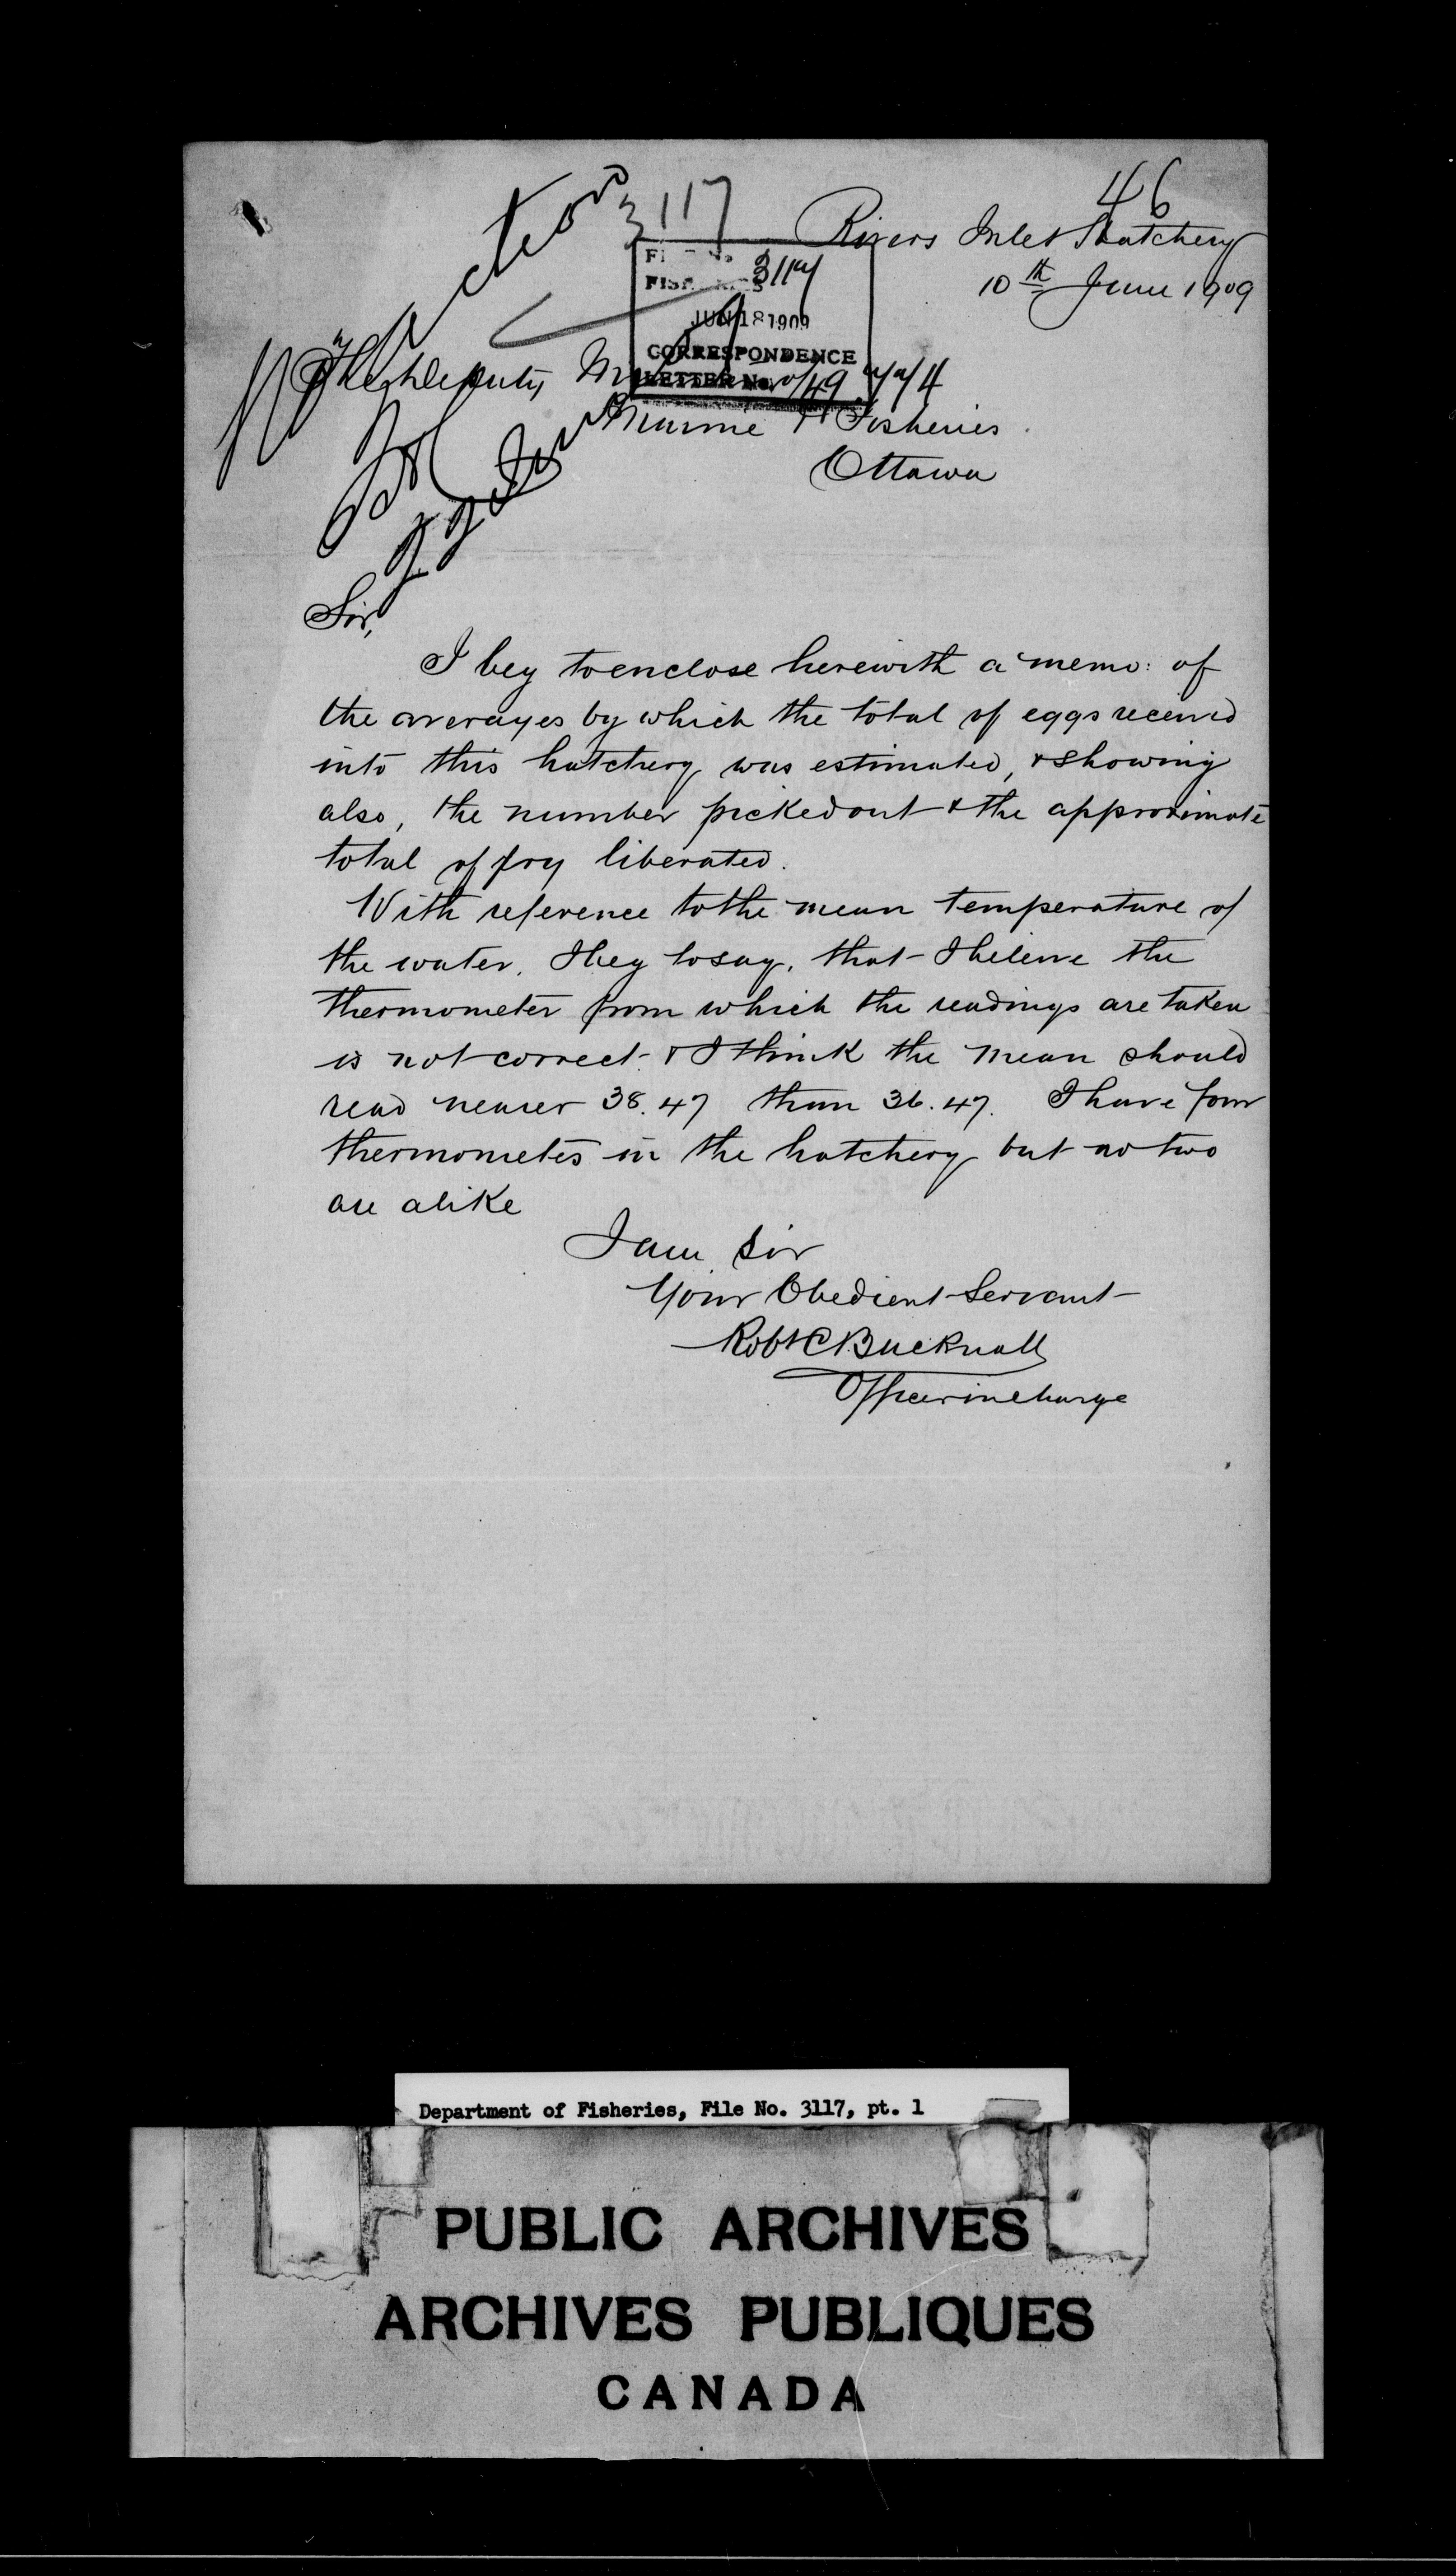 46
3117
Rivers Inlet Hatchery
10th June 1909
FILE No. 3117
FISHERIES
JUN 18 1909
CORRESPONDENCE
LETTER No.
The Deputy Minister of
Marine & Fisheries
Ottawa
Sir,
I beg to enclose herewith a memo: of
the averages by which the total of eggs received
into this hatchery was estimated, & showing
also, the number picked out & the approximate
total of fry liberated.
With reference to the mean temperature of
the water, I beg to say, that I believe the
thermometer from which the readings are taken
is not correct & I think the mean should
read nearer 38.47 than 36.47. I have four
thermometers in the hatchery but no two
are alike
I am Sir
Your Obedient Servant
Robt C Bucknall
Officer in charge
Department of Fisheries, File No. 3117, pt. 1
PUBLIC ARCHIVES
ARCHIVES PUBLIQUES
CANADA